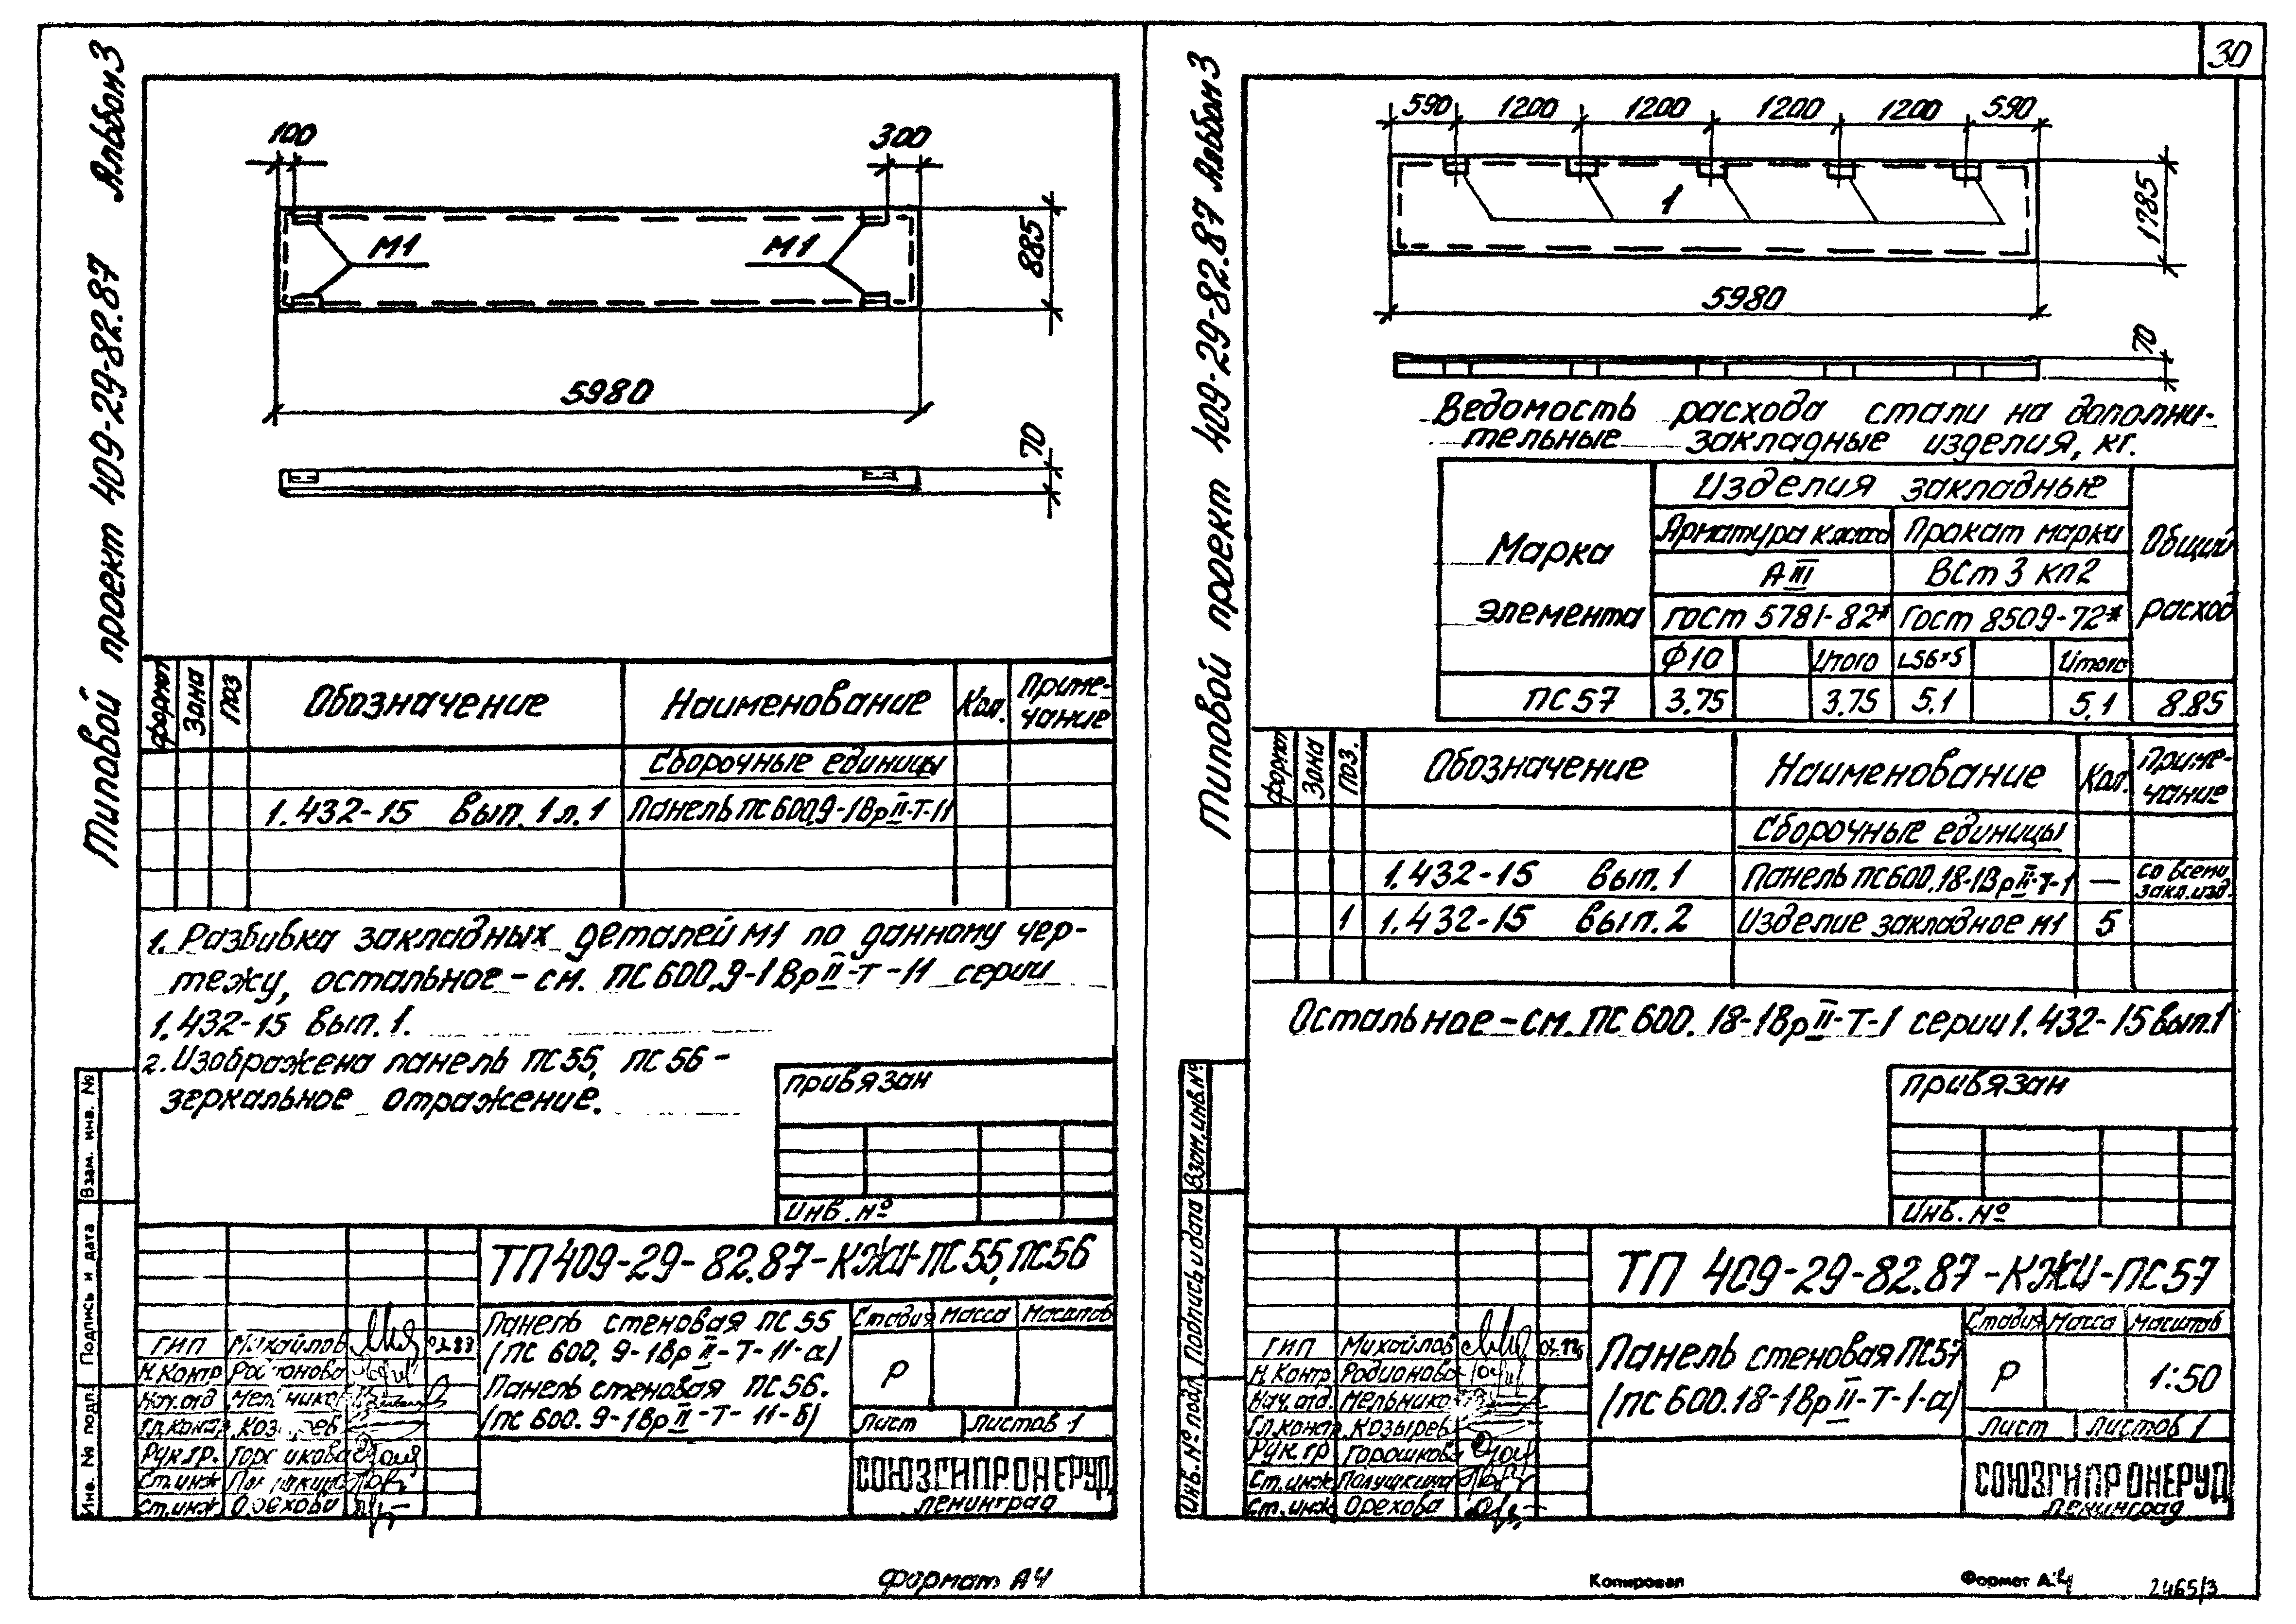 30
Типовой проект 409-29-82.87 Альбом 3
100
300
М1
М1
885
5980
70
формат
Зона
Поз
Обозначение
Наименование
Кол.
Приме-
чание
Сборочные единицы
1.432-15 вып. 1 л. 1
Панель ПС 600.9-1ВрII-Т-11
1. Разбивка закладных деталей М1 по данному чер-
тежу, остальное - см. ПС 600.9-1ВрII-Т-11 серии
1.432-15 вып. 1.
2. Изображена панель ПС 55, ПС 56 -
зеркальное отражение.
привязан
Инв. №
Взам. инв. №
Подпись и дата
Инв. № подл.
ТП 409-29-82.87-КЖИ-ПС55, ПС56
Панель стеновая ПС 55
(ПС 600. 9-1ВрII-Т-11-а)
Панель стеновая ПС 56.
(ПС 600. 9-1ВрII-Т-11-б)
Стадия Масса Масштаб
Р
Лист Листов 1
ГИП Михайлов
Н.Контр Родионова
Нач.отд Мельников
Гл.констр Козырев
Рук.гр. Горошкова
Ст.инж Полушкина
Ст.инж Орехова
СОЮЗГИПРОНЕРУД
Ленинград
Формат А4
Типовой проект 409-29-82.87 Альбом 3
590 1200 1200 1200 1200 590
1
1785
5980
70
Ведомость расхода стали на дополни-
тельные закладные изделия, кг.
Марка
элемента
Изделия закладные
Общий
расход
Арматура класса
Прокат марки
АIII
ВСт 3 кп2
ГОСТ 5781-82*
ГОСТ 8509-72*
Ф10 Итого L56×5 Итого
ПС57 3.75 3.75 5.1 5.1 8.85
формат
Зона
Поз.
Обозначение
Наименование
Кол.
Приме-
чание
Сборочные единицы
1.432-15 вып. 1 Панель ПС 600.18-1ВрII-Т-1 —
со всеми
закл.изд.
1 1.432-15 вып. 2 Изделие закладное М1 5
Остальное - см. ПС 600. 18-1ВрII-Т-1 серии 1.432-15 вып.1
привязан
Инв. №
Взам.инв.№
Подпись и дата
Инв.№ подл.
ТП 409-29-82.87-КЖИ-ПС57
Панель стеновая ПС57
(ПС 600.18-1ВрII-Т-1-а)
Стадия Масса Масштаб
Р 1:50
Лист Листов 1
ГИП Михайлов
Н.Контр. Родионова
Нач.отд. Мельников
Гл.констр. Козырев
Рук.гр Горошкова
Ст.инж Полушкина
Ст.инж Орехова
СОЮЗГИПРОНЕРУД
Ленинград
Копировал
Формат А4
2465/3